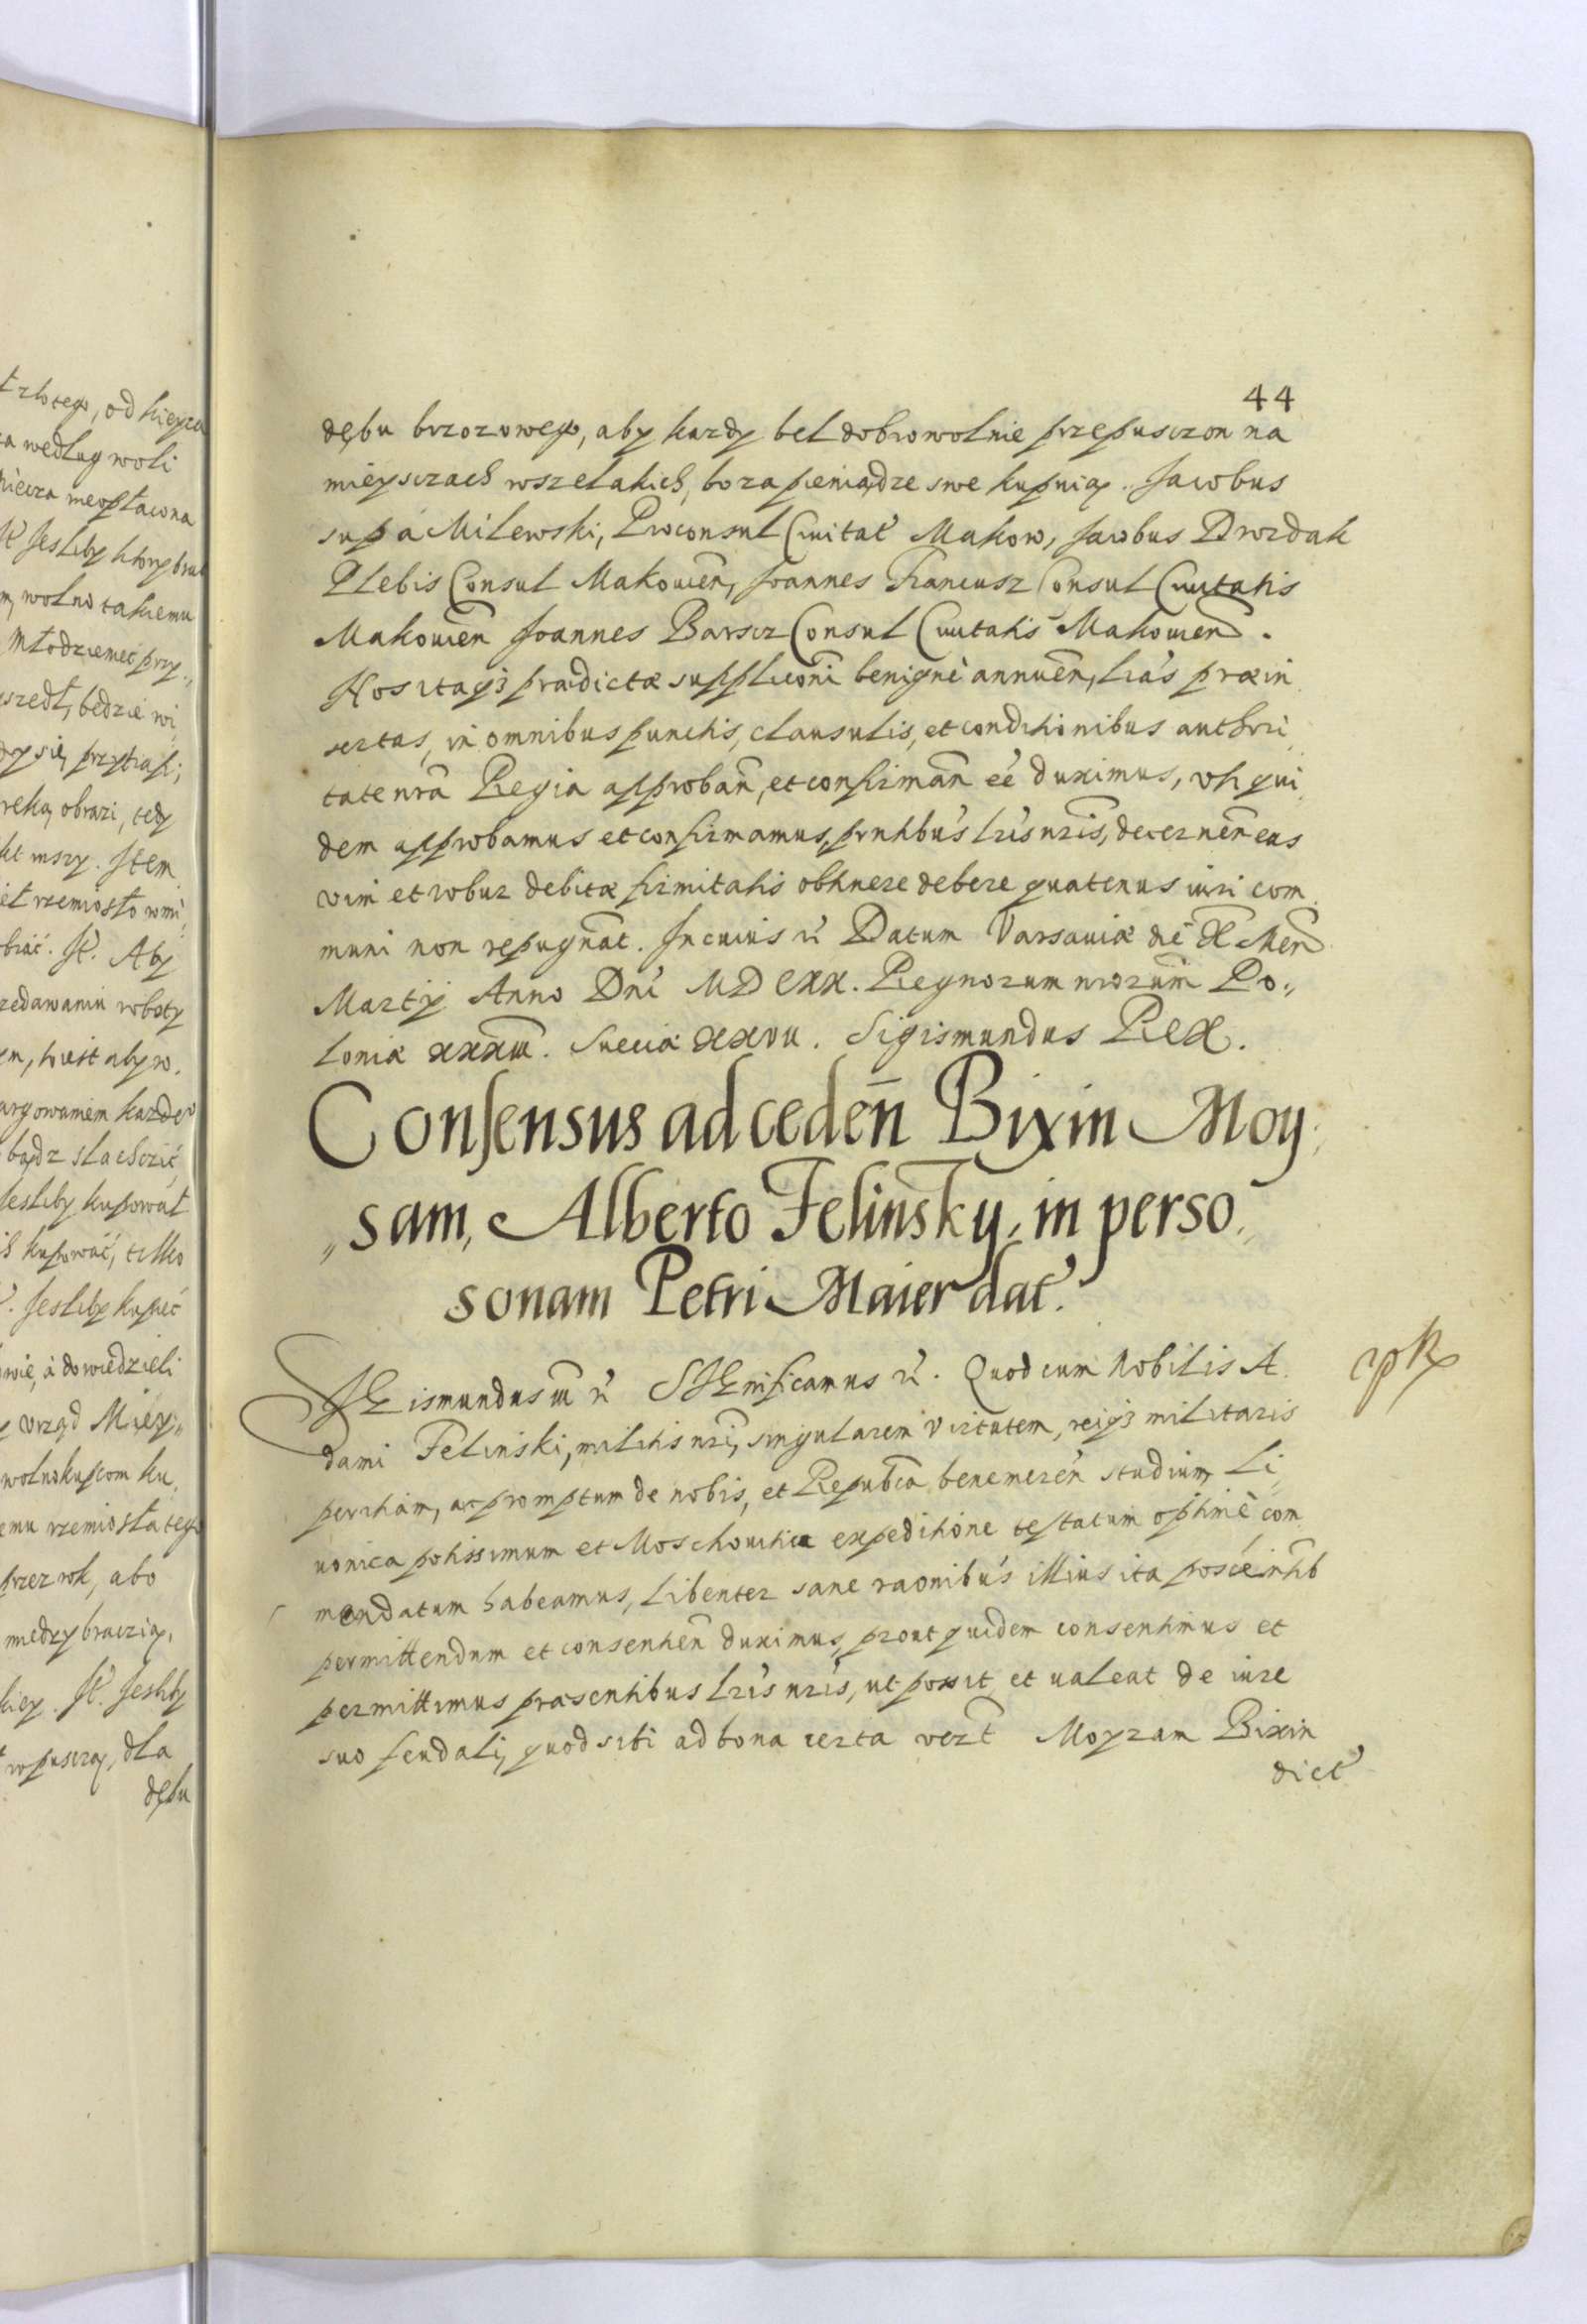 t złotego, od kieyza
ta według woli
niecza meopłacona
It Jesliby ktory brat
m, wolno takiemu
Młodziemec przy„
szedł, będzie wi
dy się, przytrafi,
reką, obrazi, tedy
kt mszy. Item
ieł rzemiosło wmi
brać. It. Aby
zedawaniu roboty
em, iest aby w.
argowaniem każdeo
bądz slachcic,
Jesliby kupował
kupować, tilko
Jesliby kupiec
wie, á dowiedzieli
y vrząd Miey„
wolno kupcom ku
emu rzemiosła tego
przez rok, abo
miedzy braczią,
kiey. It. Jesliby
wpuszczą, dla
dębu
44
dębu brzozowego, aby kazdy beł dobrowolnie przepusczon na
mieysczach wszelakich, bo za pieniądze swe kupuią. Jacobus
supá Milewski, Proconsul Ciuitat̃ Makow, Jacobus Drozdak
Plebis Consul Makouien̄, Joannes Francusz Consul Ciuitatis
Makouien̄ Joannes Barscz Consul Ciuitatis Makouien̄.
Nos itaq3 prædictæ supplicōni benignè annuen̄, lrás præin
sertas, in omnibus punctis, clausulis, et conditionibus authori
tate nr̄a Regia approban̄, et confirman̄ eé duximus, vti qui
dem approbamus et confirmamus, prntibus lris nris, decernen̄ eas
vim et robur debitæ firmitatis obtinere debere quatenus iuri com
muni non repugnat̄. In cuius rẻ Datum Varsauiæ die X Men̄
Martij Anno Dni MDCXX. Regnorum nrorum Po„
loniæ XXXIII. Sueciæ XXVII. Sigismundus Rex.
Consensus ad ceden̄ Bixin Moy
„sam, Alberto Felinsky, in perso„
sonam Petri Maier dat̃.
SIGismundus III rẻ SIGnificamus rẻ. Quod cum Nobilis A
dami Felinski, militis nri, singularem virtutem, reiq3 militaris
peritiam, ac promptum de nobis, et Republ̄ca benemeren̄ studium, Li
uonica potissimum et Moschouitica expeditione testatum optimè com
mendatum habeamus, libenter sane raōnibus illius ita
permittendum et consentien̄ duximus, prout quidem consentimus et
permittimus præsentibus lris nris, ut possit et ualeat de iure
suo feudali, quod sibi ad bona certa Moyzam Bixin
dict̃